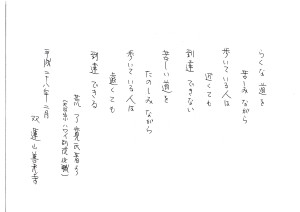 らくな道を
苦しみながら
歩いている人は
近くても
到達できない
苦しい道を
たのしみながら
歩いている人は
遠くても
到達できる
荒 了寛氏著より
平成二十八年二月
双蓮山善光寺